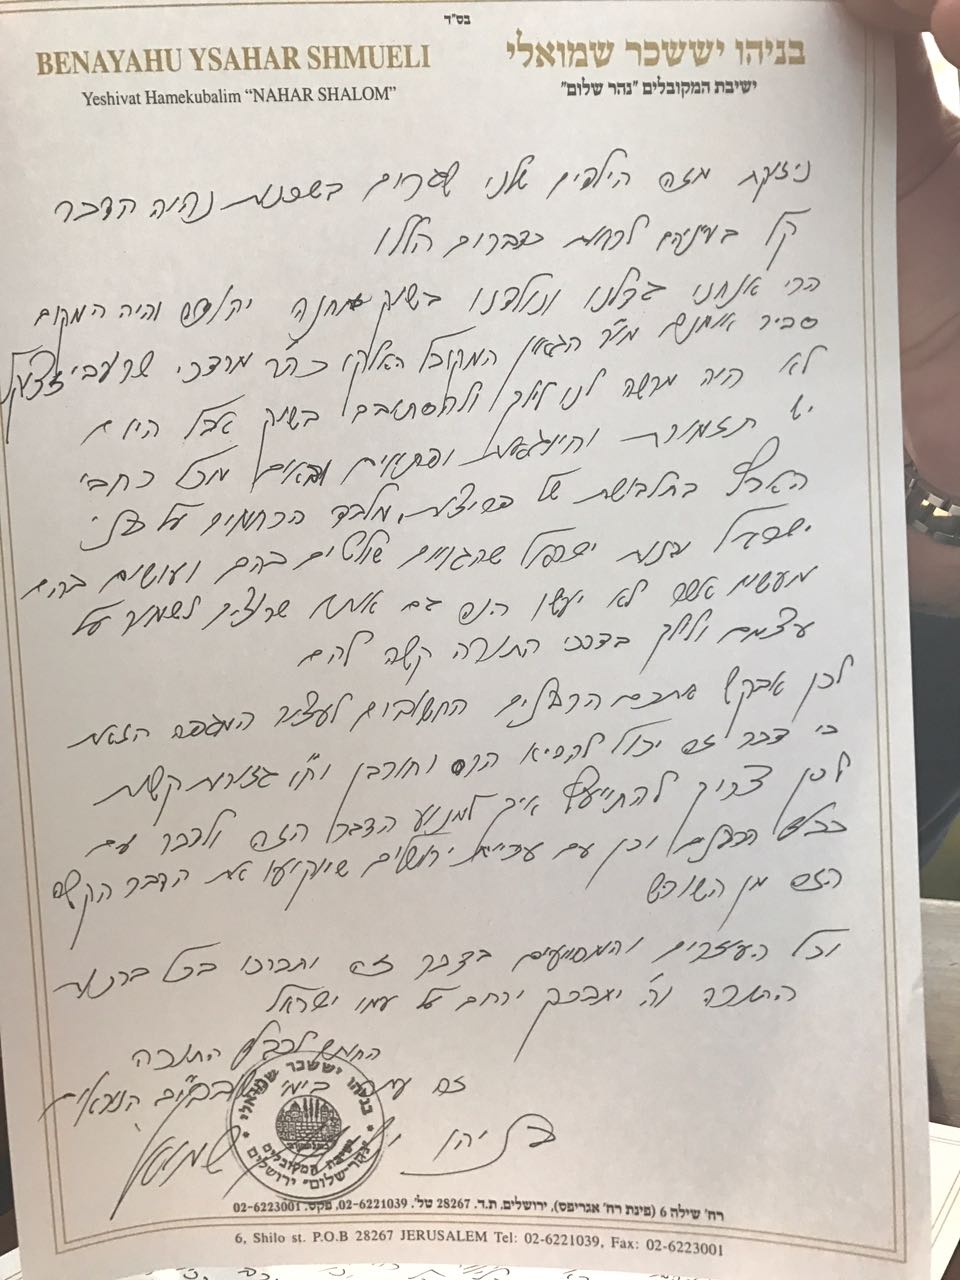 בס"ד
BENAYAHU YSAHAR SHMUELI
בניהו יששכר שמואלי
Yeshivat Hamekubalim "NAHAR SHALOM"
ישיבת המקובלים "נהר שלום"
מזה הילדים שלי שגרים בשכונת נהיה הדבר
קל בעיניהם לראות כדברים הללו
הרי אנחנו גדלנו ונולדנו בשוק מחנה יהודה והיה המקום
סביר אמנם מו"ר הגאון המקובל האלקי כהר מרדכי שרעבי זצוק"ל
לא היה מרשה לנו לילך ולהסתובב בשוק אבל היום
יש תזמורת וחינגאות ובאים מכל רחבי
הארץ בתלבושת של פריצות, מלבד הרחמים על בני
ישראל בנות ישראל שהגויים שולטים בהם ועושים בהם
מעשים אשר לא יעשו וגם אלה שרוצים לשמור על
עצמם ולילך בדרכי התורה קשה להם
לכן אבקש מכם הרבנים החשובים לעצור המגפה הזאת
כי דבר זה יכול להביא הרס וחורבן וח"ו גזירות קשות
לכן צריך להתייעץ איך למנוע הדבר הזה ולדבר עם
הרבנים וכן עם עיריית ירושלים שיוקיעו את הדבר הקשה
הזה מן השורש
וכל העוזרים והמסייעים בדבר זה יתברכו בכל ברכות
התורה וה' יתברך ירחם על עמו ישראל
החותם לכבוד התורה
זה עתה בימי שובבי"ם הנוראים
בניהו יששכר שמואלי
בניהו יששכר שמואלי
ישיבת המקובלים
"נהר-שלום" ירושלים
רח' שילה 6 (פינת רח' אגריפס), ירושלים, ת.ד. 28267 טל'. 02-6221039, פקס. 02-6223001
6, Shilo st. P.O.B 28267 JERUSALEM Tel: 02-6221039, Fax: 02-6223001